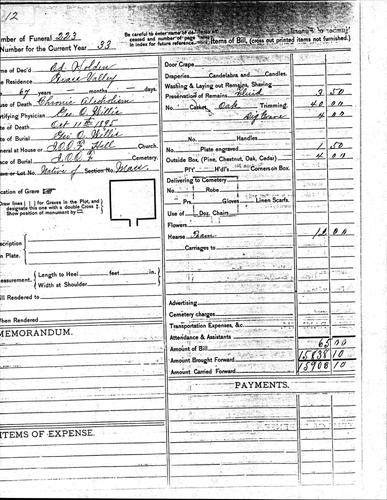 12
umber of Funeral 223
Number for the Current Year 33
Be careful to enter name of de-
ceased and number of page
in index for future reference.
Items of Bill, (cross out printed items not furnished.)
me of Dec'd Ed. Holden
e Residence Grass Valley
67 years - months - days.
use of Death Chronic Alcoholism
rtifying Physician Geo. O. Willis
te of Death Oct 11th 1895
te of Burial
neral at House or I.O.O.F. Hall Church.
ace of Burial I.O.O.F. Cemetery.
e or Lot No. Native of Section No. Mass
cation of Grave
Draw lines for Graves in the Plot, and
designate this one with a double Cross
Show position of monument by
scription
n Plate.
easurement. Length to Heel feet in.
Width at Shoulder
ill Rendered to
hen Rendered
MEMORANDUM.
ITEMS OF EXPENSE.
Door Crape
Draperies Candelabra and Candles.
Washing & Laying out Remains, Shaving
Preservation of Remains Fluid 3 50
No. Casket Oak Trimming. 40 00
Dig Grave 4 00
No. Handles
Plate engraved 1 50
Outside Box (Pine, Chestnut, Oak, Cedar) 4 00
P'l'f H'd'l's Corners on Box.
Delivering to Cemetery
No. Robe
Prs. Gloves Linen Scarfs.
Use of Doz. Chairs
Flowers
Hearse 12 00
Carriages to
Advertising
Cemetery charges
Transportation Expenses, &c.
Attendance & Assistants
Amount of Bill 65 00
Amount Brought Forward 15838 10
Amount Carried Forward 15903 10
PAYMENTS.